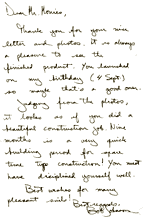 Dear Mr. Romies,
Thank you for your nice
letter and photos. It is always
a pleasure to see the
finished product. You launched
on my birthday (4 Sept.)
so maybe that's a good omen
Judging from the photos,
it looks as if you did a
beautiful construction job. Nine
months is a very quick
building period for a first
time type construction! You must
have disciplined yourself well.
Best wishes for many
pleasant sails! Best regards,
Bob Johnson